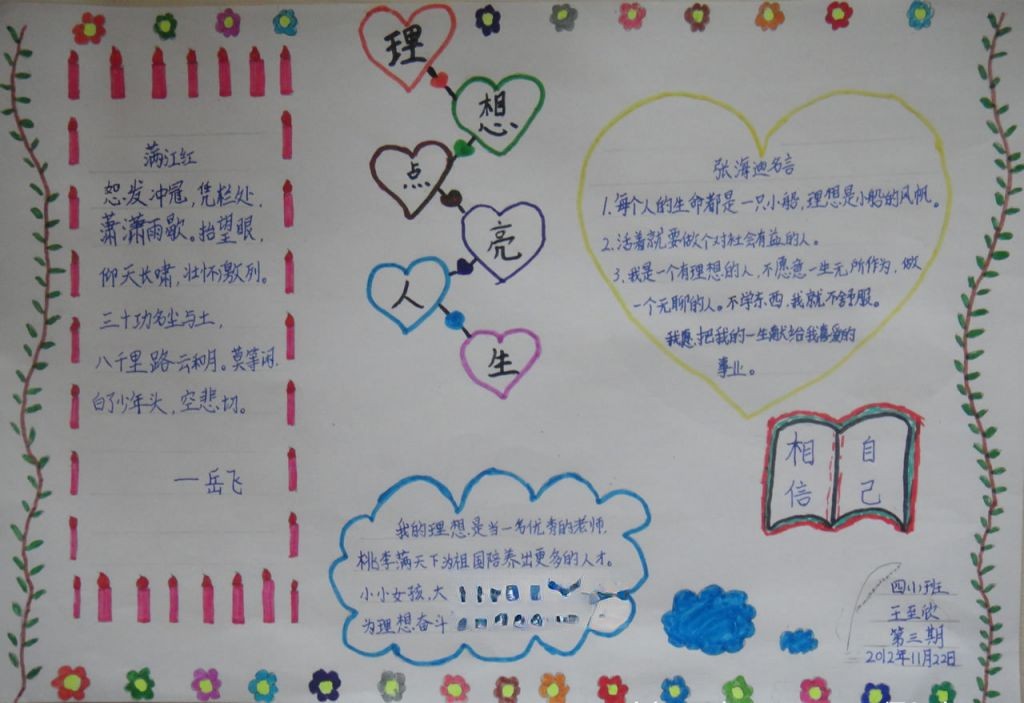 理
想
点
亮
人
生
满江红
怒发冲冠，凭栏处，
潇潇雨歇。抬望眼，
仰天长啸，壮怀激烈。
三十功名尘与土，
八千里路云和月。莫等闲，
白了少年头，空悲切。
一岳飞
张海迪名言
1.每个人的生命都是一只小船，理想是小船的风帆。
2.活着就要做个对社会有益的人。
3.我是一个有理想的人，不愿意一生无所作为，做
一个无聊的人。不学东西，我就不舒服。
我愿把我的一生献给我喜爱的
事业。
相信
自己
我的理想是当一名优秀的老师，
桃李满天下为祖国培养出更多的人才。
小小女孩，大
为理想奋斗
四小班
王至欣
第三期
2012年11月22日